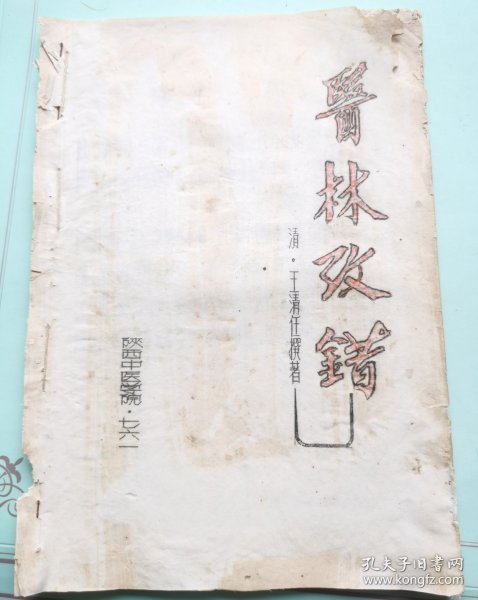 醫林改錯
清·王清任撰著
陕西中医学院·七六一
孔夫子旧书网
www.kongfz.com